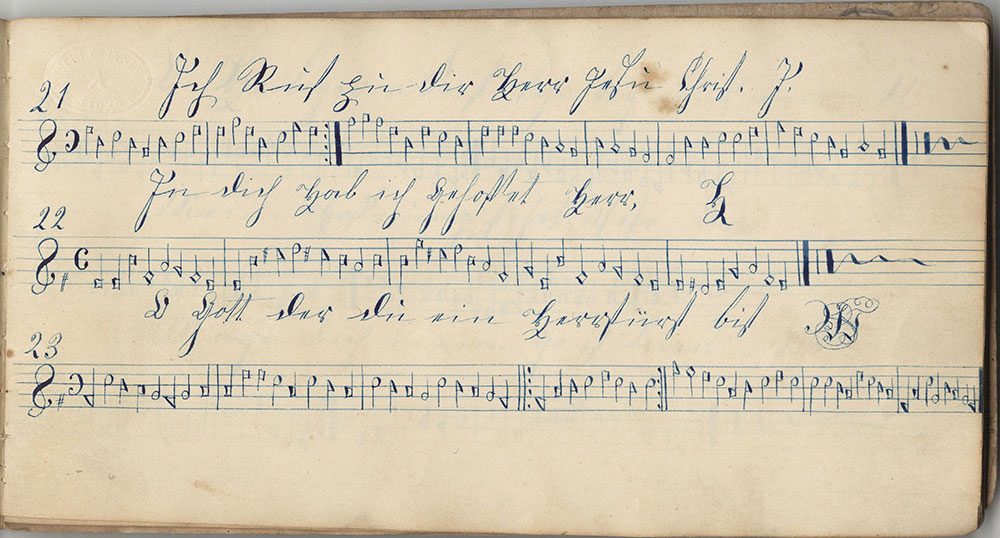 21 Ich Ruf zu dir Herr Jesu Christ. J.
In dich Hab ich Gehoffet Herr. H
22
O Gott der du ein Herrfürst bist
23